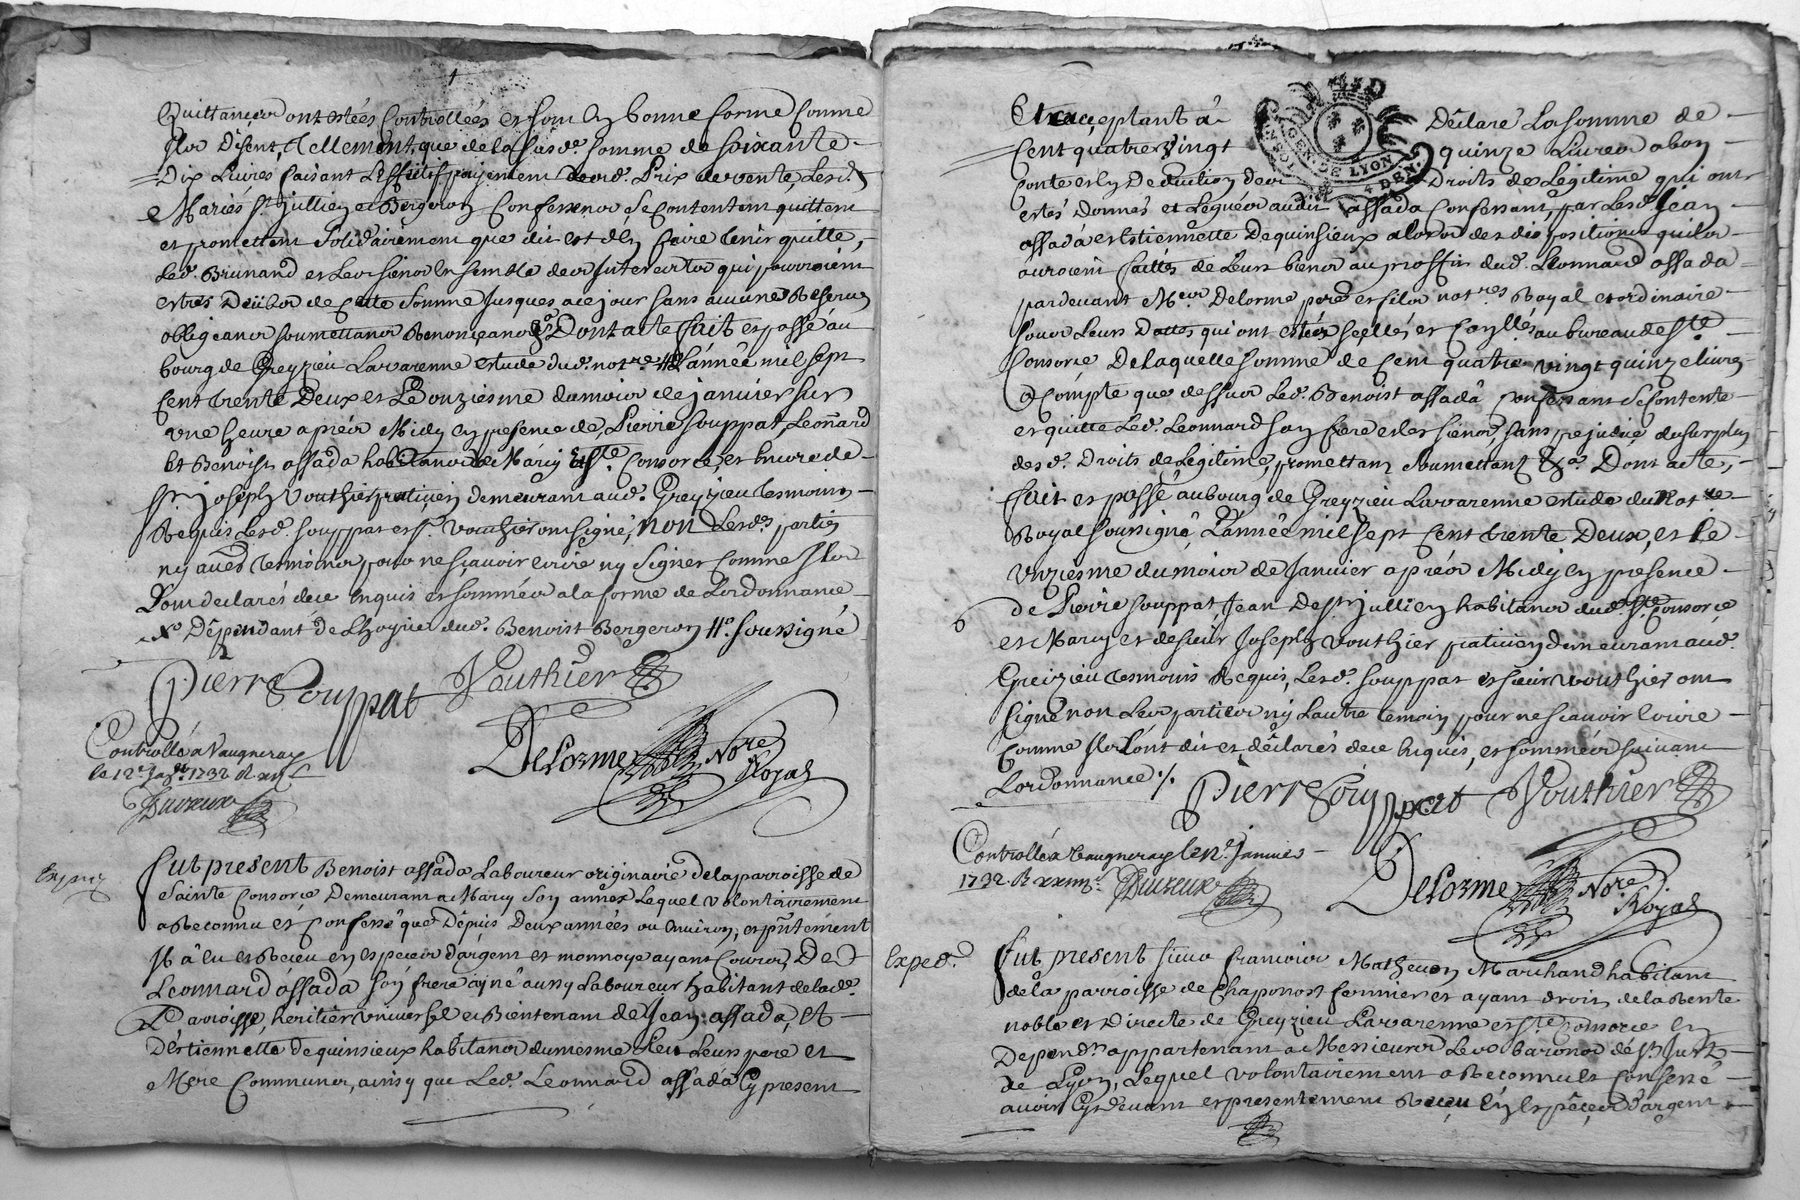 Quittances ont estées Controllées et sont En bonne forme Comme
Ils Disent, Tellement que de la susde somme de soixante
Dix Livres faisant L'Effectif payement dud. Prix de vente, Lesd.
Mariés St Jullien et Bergeron Confessans se Contentent quittent
et promettent Solidairement que dit est d'En faire tenir quitte,
Led. Brunand et Les siens Ensemble de tous Interests qui pourroient
estres Deubs de Cette Somme Jusques a ce jour sans aucune Reserve
obligeans soumettans Renonçans &a Dont acte fait et passé au
bourg de Greyzieu Lavarenne estude dud. notre L'année mil sept
Cent trente Deux et Le onziesme du mois de janvier sur
une heure après Midy En presence de Pierre Souppat, Leonnard
Et Benoist assada habitans de Marcy Et Ste Consorce, et Encore de
Sr. Joseph Vouthier praticien demeurant aud. Greyzieu tesmoins
Requis Lesd. Souppat et Sr. Vouthier ont signé, non Lesds parties
ny autres tesmoins pour ne sçavoir Ecrire ny Signer Comme Ils
L'ont declarés de ce Enquis et sommés a la forme de L'ordonnance
Dépendant de L'hoyrie dud. Benoist Bergeron soussigné
Pierre Souppat Vouthier
Delorme Nore Royal
Controllé a Vaugneray
le 12e Janer 1732 R
Duvreux
Fut present Benoist assada Laboureur originaire de la parroisse de
Sainte Consorce Demeurant a Marcy Son annexe Lequel volontairement
a Reconnu et Confessé que Depuis Deux années ou Environ, et pntement
Il a Eu et Receu En Especes d'argent et monnoye ayant Cours, De
Leonnard assada son frere ayné aussy Laboureur habitant de lade
Parroisse, heritier universel et Bientenant de Jean assada, Et
D'Estiennette de quinsieux habitans du mesme Lieu Leurs pere et
Mere Communs, ainsy que Led. Leonnard assada Cy present
Et acceptant a Declare La somme de
Cent quatre vingt quinze Livres a bon
Conte et En Deduction des Droits de Legitime qui ont
estés donnés et Legués audit assada Confessant, par Lesd. Jean
assada et Estiennette Dequinsieux a Lors des dispositions quils
auroient faittes de Leurs biens au proffit dud. Leonnard assada
pardevant Mes Delorme pere et fils notres Royal et ordinaire
sous Leurs Dattes qui ont estées scellés et au bureau de Ste
Consorce De Laquelle Somme de Cent quatre vingt quinze Livres
a Compte que dessus Led. Benoist assada Confessant se Contente
et quitte Led. Leonnard son frere et Les siens, sans prejudice du surplus
desd. Droits de Legitime, promettant soumettant &a. Dont acte,
Fait et passé au bourg de Greyzieu Lavarenne estude du Notre
Royal Soussigné, L'année mil sept Cent trente Deux, et Le
Onziesme du mois de Janvier après Midy En presence
de Pierre Souppat Jean De St Jullien habitans dud. Ste Consorce
et Marcy et de sieur Joseph Vouthier praticien demeurant aud.
Greizieu tesmoins Requis, Lesd. Souppat et sieur Vouthier ont
signé non Les parties ny L'autre temoin pour ne sçavoir Ecrire
Comme Ils L'ont dit et declarés de ce Enquis, et sommés suivant
L'ordonnance
Pierre Souppat Vouthier
Delorme Nore Royal
Controllé a Vaugneray le 12e Janvier
1732 R
Duvreux
Exped.
Fut present sieur François Mathevon Marchand habitant
de la parroisse de Chaponost fermier et ayant droit de la Rente
noble et Directe de Greyzieu Lavarenne et Ste Consorce En
Dependt appartenant a Messieurs Les barons de St Just
de Lyon, Lequel volontairement a Reconnu et Confessé
avoir Cy devant et presentement Receu En Especes d'argent
GEN. DE LYON
4 DEN.